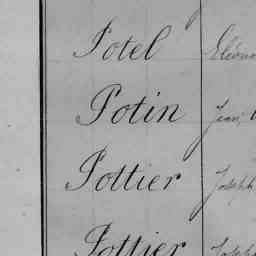 Potel Eléono
Potin Jean,
Pottier Joseph
Pottier Joseph